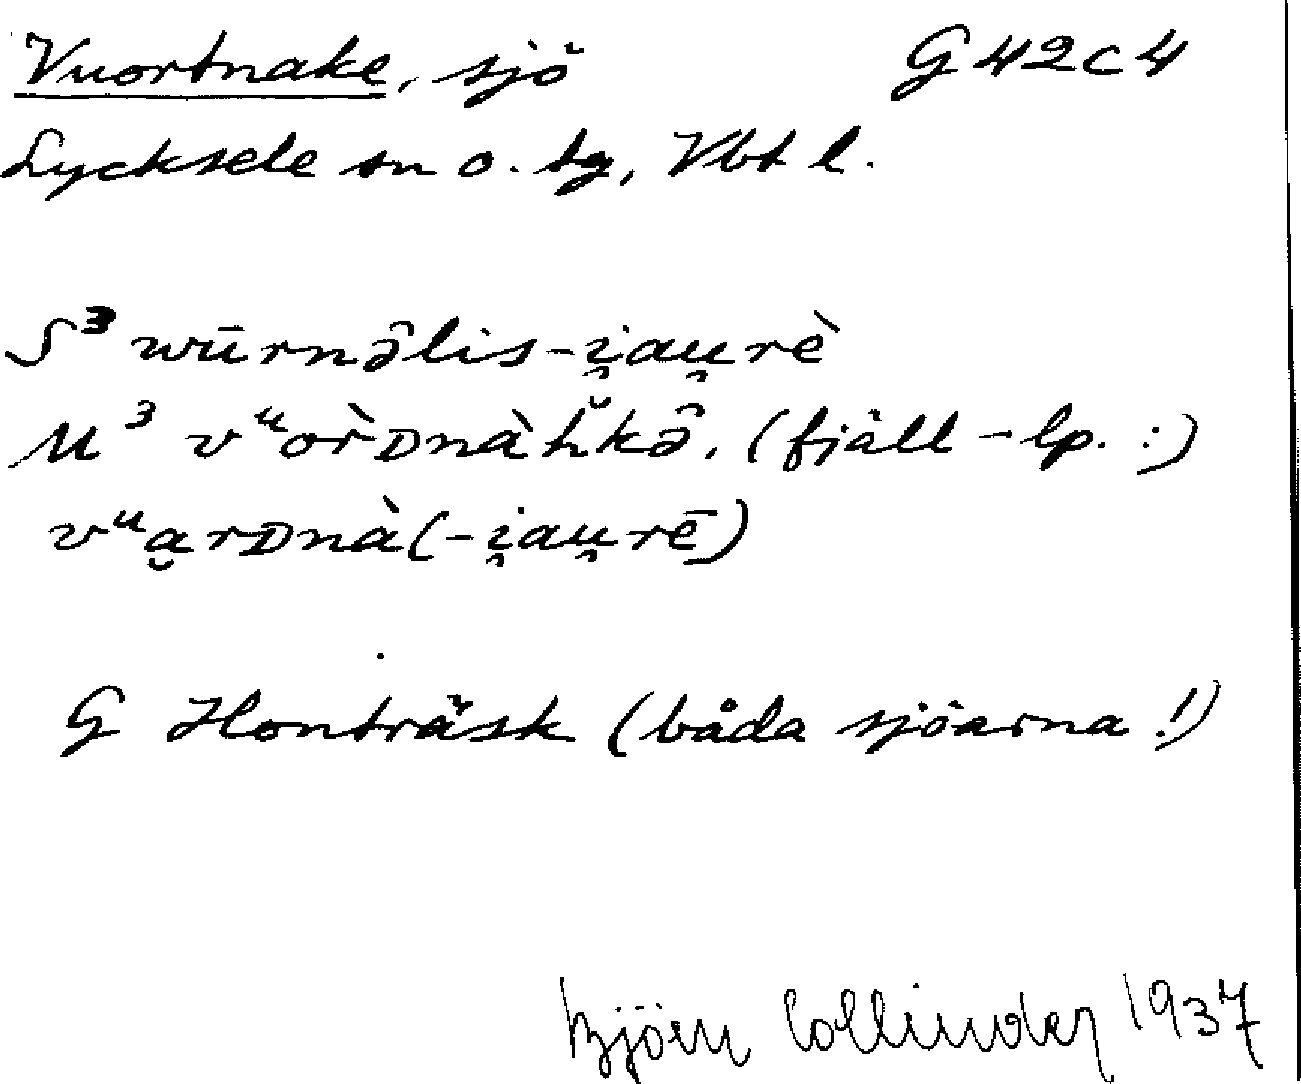 Vuortnake, sjö G42c4
Lycksele sn o. tg, Vbt l.
S³ wūrnə̂lis-i̯au̯rè
U³ vᵘor̀Dnàh̆kə̂. (fjäll-lp. :)
vᵘa̮rDnà(-i̯au̯rē)
G Honträsk (båda sjöarna!)
Björn Collinder 1937